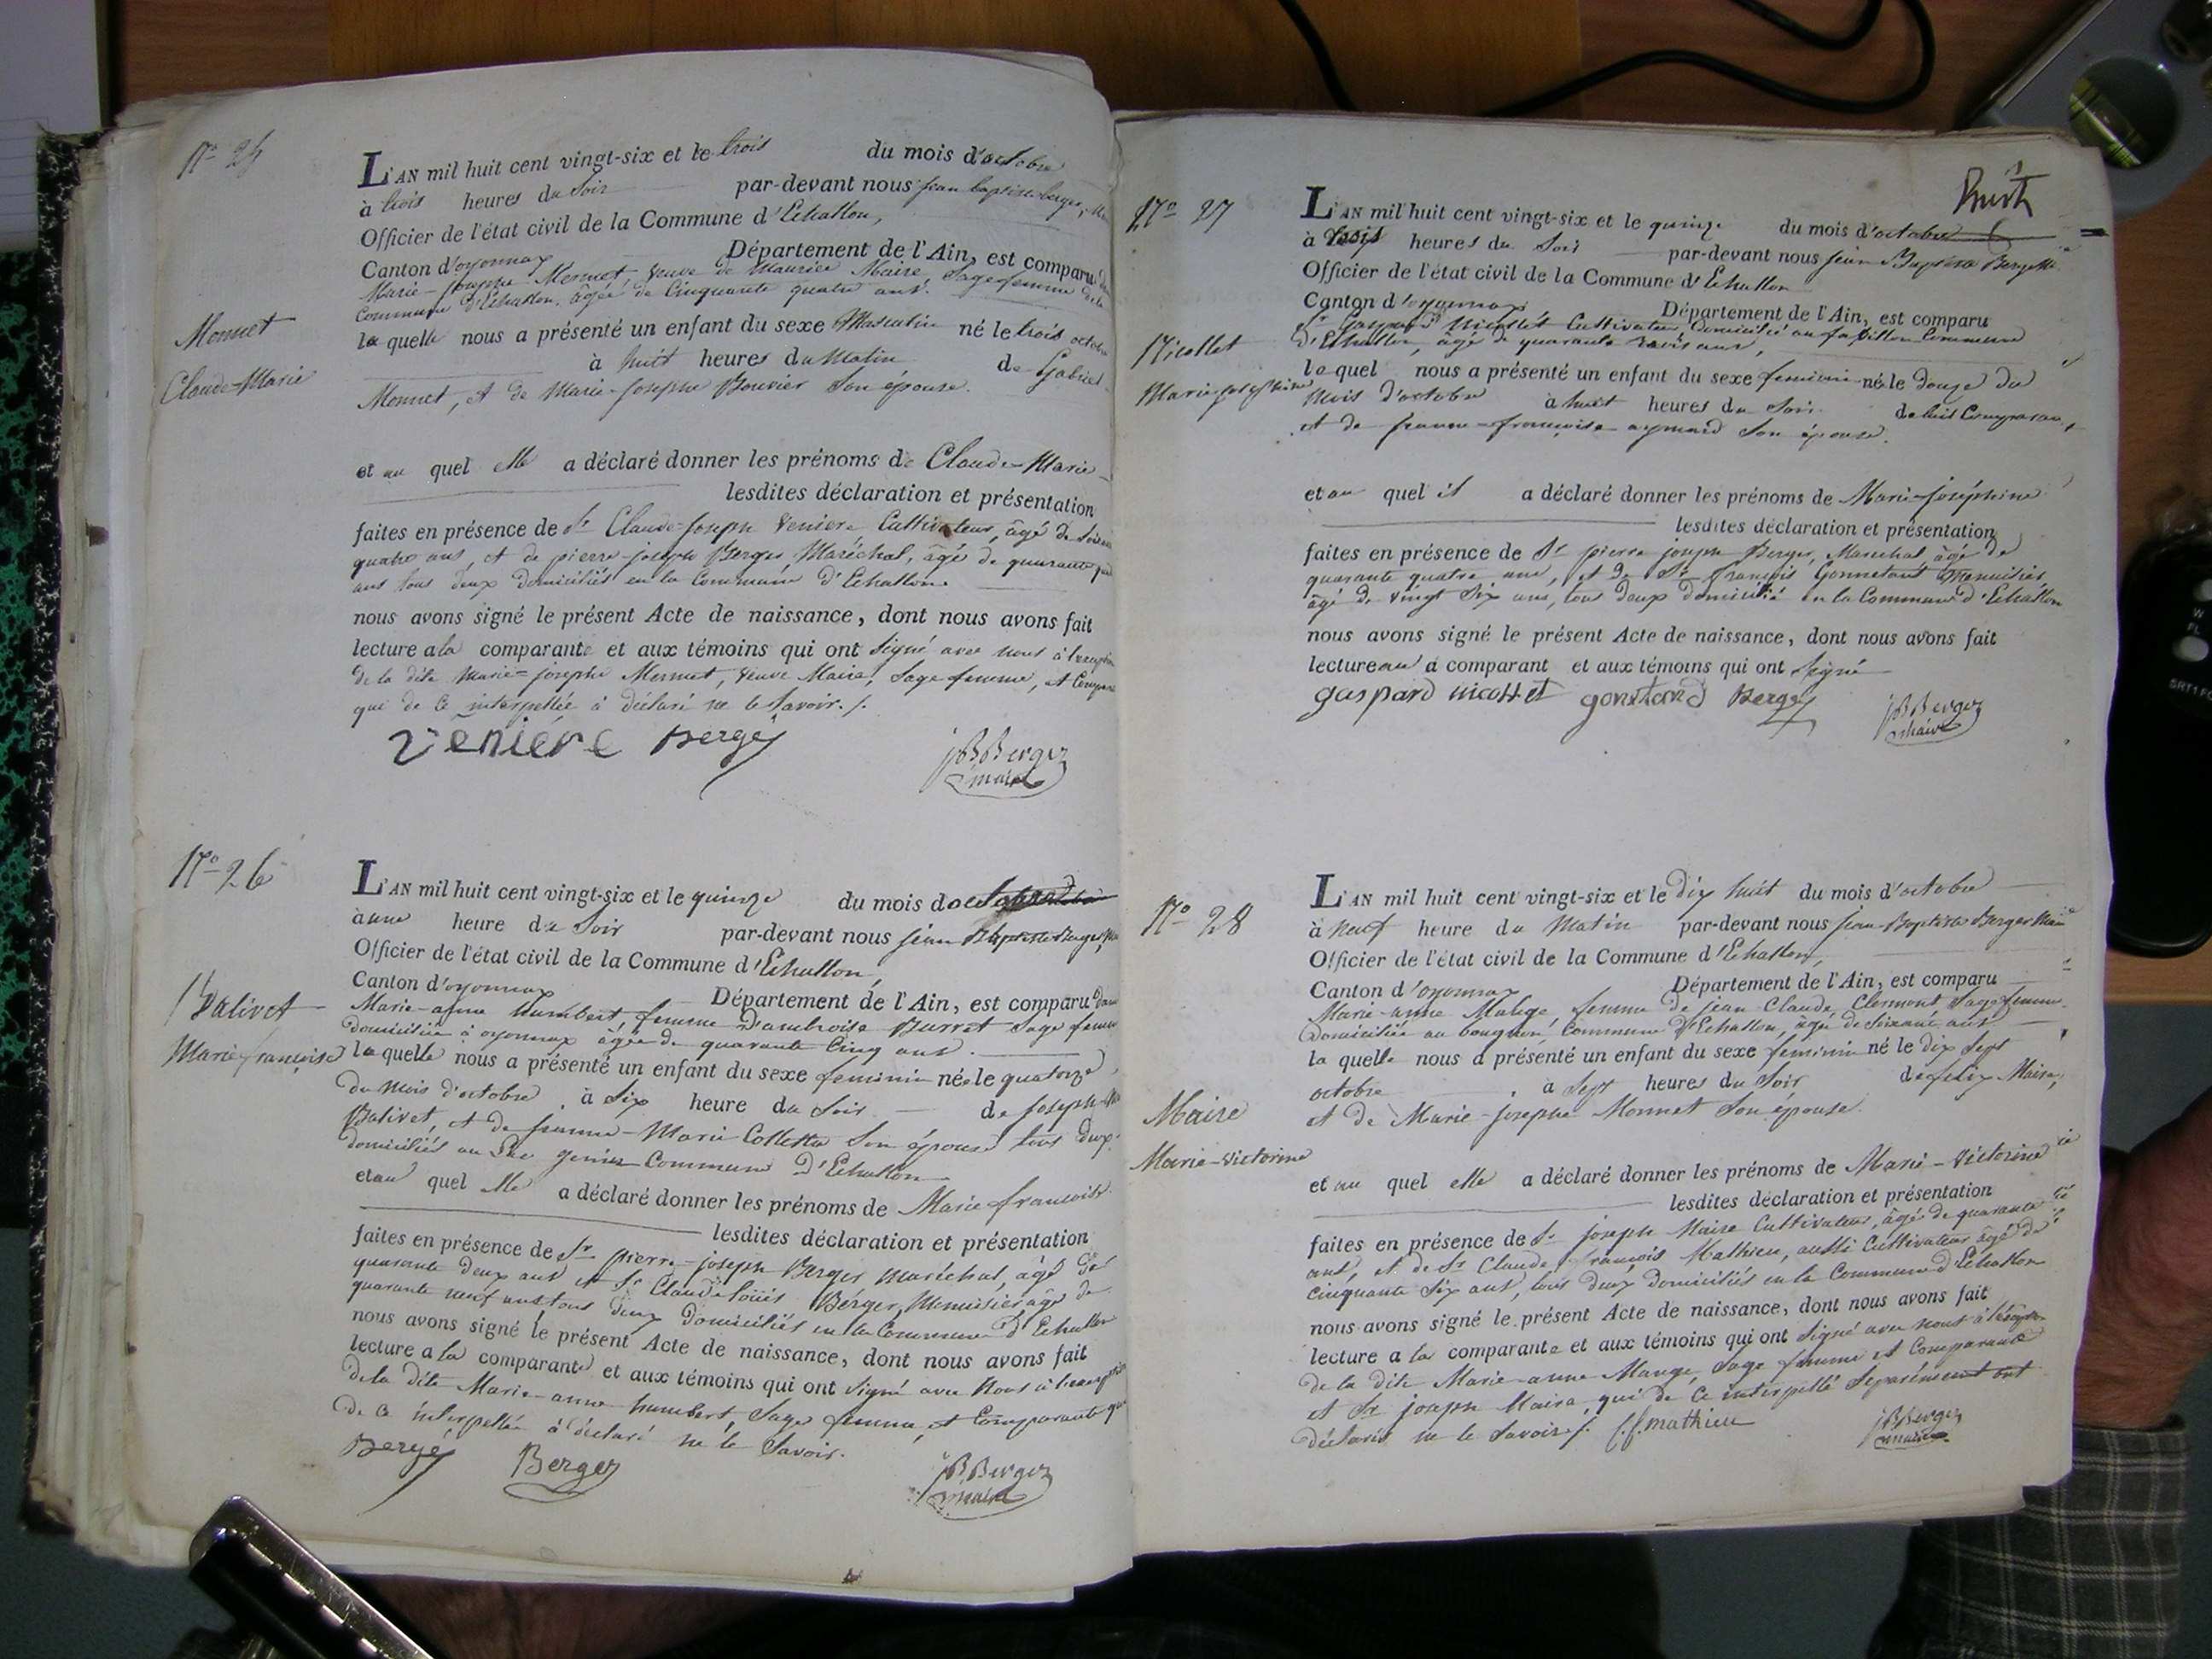 N° 25
L'AN mil huit cent vingt-six et le trois du mois d'octobre
à trois heures du Soir par-devant nous jean baptiste berger,
Officier de l'état civil de la Commune d'Echallon,
Canton d'oyonnax Département de l'Ain, est comparu
Marie-josephe Mermet, veuve de Maurice Maire, Sage femme de la
Commune d'Echallon, âgée de Cinquante quatre ans.
Monnet
Claude-Marie
la quelle nous a présenté un enfant du sexe Masculin né le trois octobre
à huit heures du Matin de Gabriel
Monnet, et de Marie-Josephe Bouvier Son épouse.
et au quel elle a déclaré donner les prénoms de Claude-Marie
lesdites déclaration et présentation
faites en présence de Sr Claude-Joseph Veniere Cultivateur, âgé de
quatre ans, et de pierre-joseph Berger, Maréchal, âgé de quarante
ans tous deux domiciliés en la Commune d'Echallon
nous avons signé le présent Acte de naissance, dont nous avons fait
lecture a la comparante et aux témoins qui ont Signé avec nous à l'exception
de la dite Marie-josephe Mermet, veuve Maire, Sage femme, et
qui de ce interpellée à déclaré ne le Savoir./.
veniere Berger
jB Berger
maire
N° 26
L'AN mil huit cent vingt-six et le quinze du mois d'octobre
à une heure du Soir par-devant nous jean Baptiste Berger,
Officier de l'état civil de la Commune d'Echallon,
Canton d'oyonnax Département de l'Ain, est comparu
Marie-anne humbert femme d'ambroise Burret Sage femme
domiciliée à oyonnax âgée de quarante Cinq ans.
Balivet
Marie françoise
la quelle nous a présenté un enfant du sexe feminin née le quatorze
du mois d'octobre à Six heure du Soir de Joseph
Balivet, et de jeanne-Marie Colletta Son épouse tous deux
domiciliés au genier Commune d'Echallon
et au quel elle a déclaré donner les prénoms de Marie francoise
lesdites déclaration et présentation
faites en présence de Sr pierre-joseph Berger maréchal, âgé de
quarante deux ans et Sr Claude louis Berger, Menuisier âgé de
quarante neuf ans tous deux domiciliés en la Commune d'Echallon
nous avons signé le présent Acte de naissance, dont nous avons fait
lecture a la comparante et aux témoins qui ont Signé avec Nous à l'exception
de la dite Marie-anne humbert, Sage femme, et Comparante qui
de ce interpellée à déclaré ne le Savoir.
Berger Berger
jB Berger
maire
N° 27
huit
L'AN mil huit cent vingt-six et le quinze du mois d'octobre
à trois heures du Soir par-devant nous jean Baptiste Berger
Officier de l'état civil de la Commune d'Echallon
Canton d'oyonnax Département de l'Ain, est comparu
Sr Gaspard Nicollet Cultivateur, domicilié au favillon Commune
d'Echallon, âgé de quarante trois ans,
Nicollet
Marie josephine
le quel nous a présenté un enfant du sexe feminin né le douze du
mois d'octobre à huit heures du Soir de lui Comparant,
et de jeanne-françoise aymard Son épouse.
et au quel il a déclaré donner les prénoms de Marie-joséphine
lesdites déclaration et présentation
faites en présence de Sr pierre joseph Berger, Maréchal âgé de
quarante quatre ans, et de Sr françois Gonnetant Menuisier,
âgé de vingt Six ans, tous deux domicilié en la Commune d'Echallon
nous avons signé le présent Acte de naissance, dont nous avons fait
lecture au comparant et aux témoins qui ont Signé
gaspard nicollet Berger
jB Berger
maire
N° 28
L'AN mil huit cent vingt-six et le dix huit du mois d'octobre
à neuf heure du Matin par-devant nous jean-Baptiste Berger Maire
Officier de l'état civil de la Commune d'Echallon,
Canton d'oyonnax Département de l'Ain, est comparu
Marie-anne Mange, femme de jean Claude Clermont Sage femme
Domiciliée au Commune d'Echallon, âgée de Soixante ans
la quelle nous a présenté un enfant du sexe feminin né le dix Sept
Maire
Marie-victorine
octobre à Sept heures du Soir de felix Maire,
et de Marie-josephe Monnet Son épouse.
et au quel elle a déclaré donner les prénoms de Marie-Victorine
lesdites déclaration et présentation
faites en présence de Sr joseph Maire Cultivateur, âgé de quarante
ans, et de Sr Claude françois Mathieu, aussi Cultivateur âgé de
cinquante Six ans, tous deux domiciliés en la Commune d'Echallon
nous avons signé le présent Acte de naissance, dont nous avons fait
lecture a la comparante et aux témoins qui ont Signé avec nous à l'exception
de la dite Marie-anne Mange, Sage femme et Comparante
et Sr joseph Maire, qui de ce interpellé Séparément ont
déclarés ne le Savoir./. c.f. mathieu
jB Berger
maire